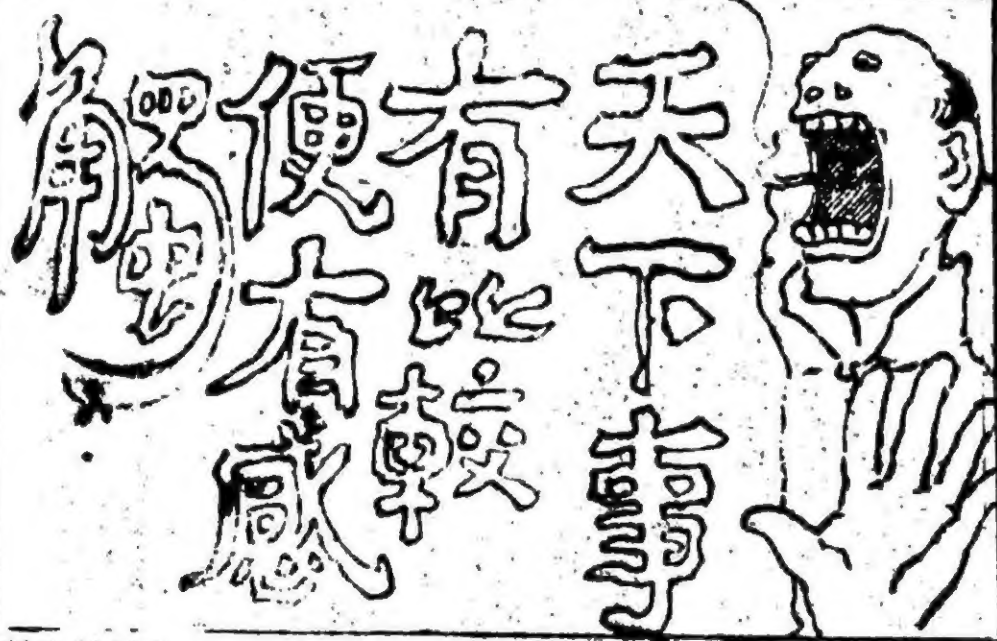 天下事
有比較
便有感
觸